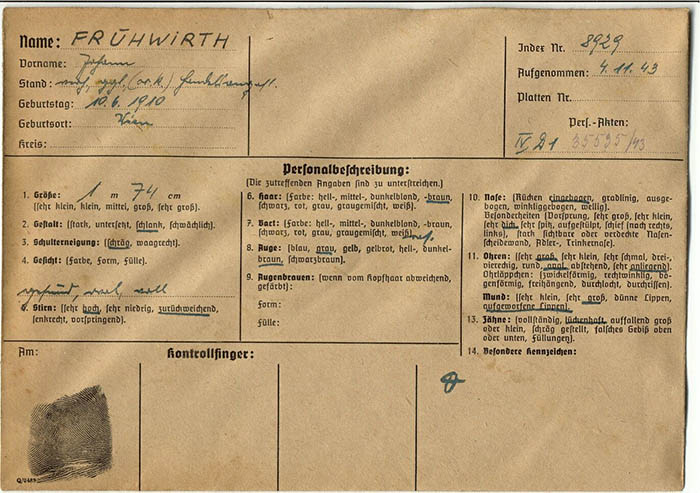 Name: FRÜHWIRTH
Vorname: Johann
Stand: verh., ggl., (ar. k.) Handelsangest.
Geburtstag: 10. 6. 1910
Geburtsort: Wien
Kreis:
Index Nr. 8929
Aufgenommen: 4. 11. 43
Platten Nr.
Pers.-Akten:
IV D1 35535/43
Personalbeschreibung:
(Die zutreffenden Angaben sind zu unterstreichen.)
1. Größe: 1 m 74 cm
(sehr klein, klein, mittel, groß, sehr groß).
2. Gestalt: (stark, untersetzt, schlank, schwächlich).
3. Schulterneigung: (schräg, waagrecht).
4. Gesicht: (Farbe, Form, Fülle).
gesund, oval, voll
5. Stirn: (sehr hoch, sehr niedrig, zurückweichend,
senkrecht, vorspringend).
6. Haar: (Farbe: hell-, mittel-, dunkelblond, -braun,
schwarz, rot, grau, graugemischt, weiß).
7. Bart: (Farbe: hell-, mittel-, dunkelblond, -braun,
schwarz, rot, grau, graugemischt, weiß)
8. Auge: (blau, grau, gelb, gelbrot, hell-, dunkel-
braun, schwarzbraun).
9. Augenbrauen: (wenn vom Kopfhaar abweichend,
gefärbt):
Form:
Fülle:
10. Nase: (Rücken eingebogen, gradlinig, ausge-
bogen, winkliggebogen, wellig).
Besonderheiten (Vorsprung, sehr groß, sehr klein,
sehr dick, sehr spitz, aufgestülpt, schief (nach rechts,
links), stark sichtbare oder verdeckte Nasen-
scheidewand, Adler-, Trinkernase).
11. Ohren: (sehr groß, sehr klein, sehr schmal, drei-,
viereckig, rund, oval, abstehend, sehr anliegend)
Ohrläppchen: (zwickelförmig, rechtwinklig, bo-
genförmig, freihängend, durchlocht, durchrissen).
Mund: (sehr klein, sehr groß, dünne Lippen,
aufgeworfene Lippen).
13. Zähne: (vollständig, lückenhaft, auffallend groß
oder klein, schräg gestellt, falsches Gebiß oben
oder unten, Füllungen).
14. Besondere Kennzeichen:
Am:
Kontrollfinger: